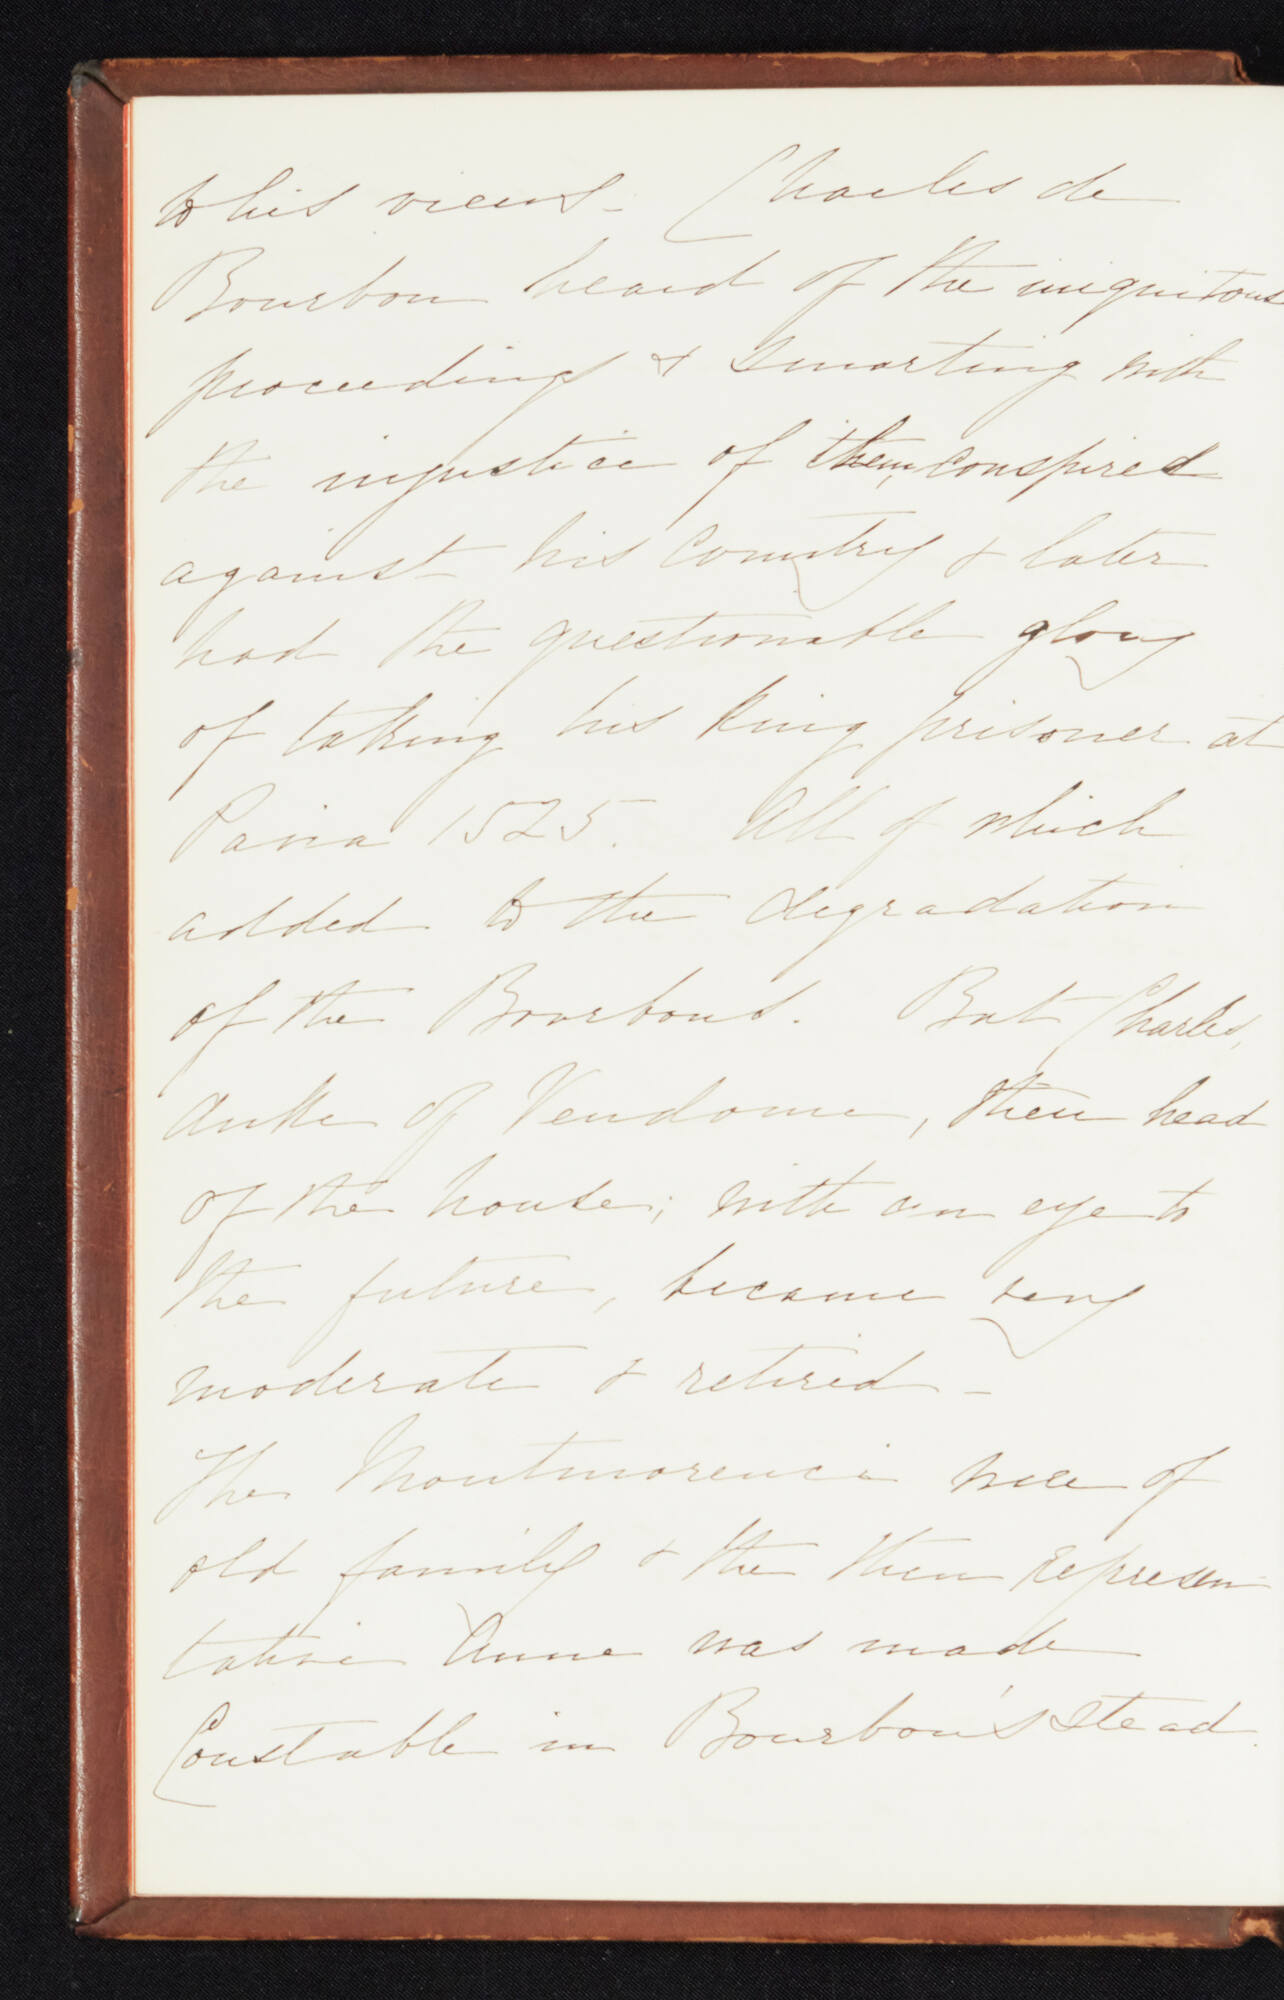 to his views - Charles de
Bourbon heard of the iniquitous
proceedings & smarting with
the injustice of them, conspired
against his country & later
had the questionable glory
of taking his King prisoner at
Pavia 1525. All of which
added to the degradation
of the Bourbons. But Charles,
duke of Vendome, then head
of the house; with an eye to
the future, became very
moderate & retired -
The Montmorenci were of
old family & the then represen-
tative Anne was made
Constable in Bourbon's stead.